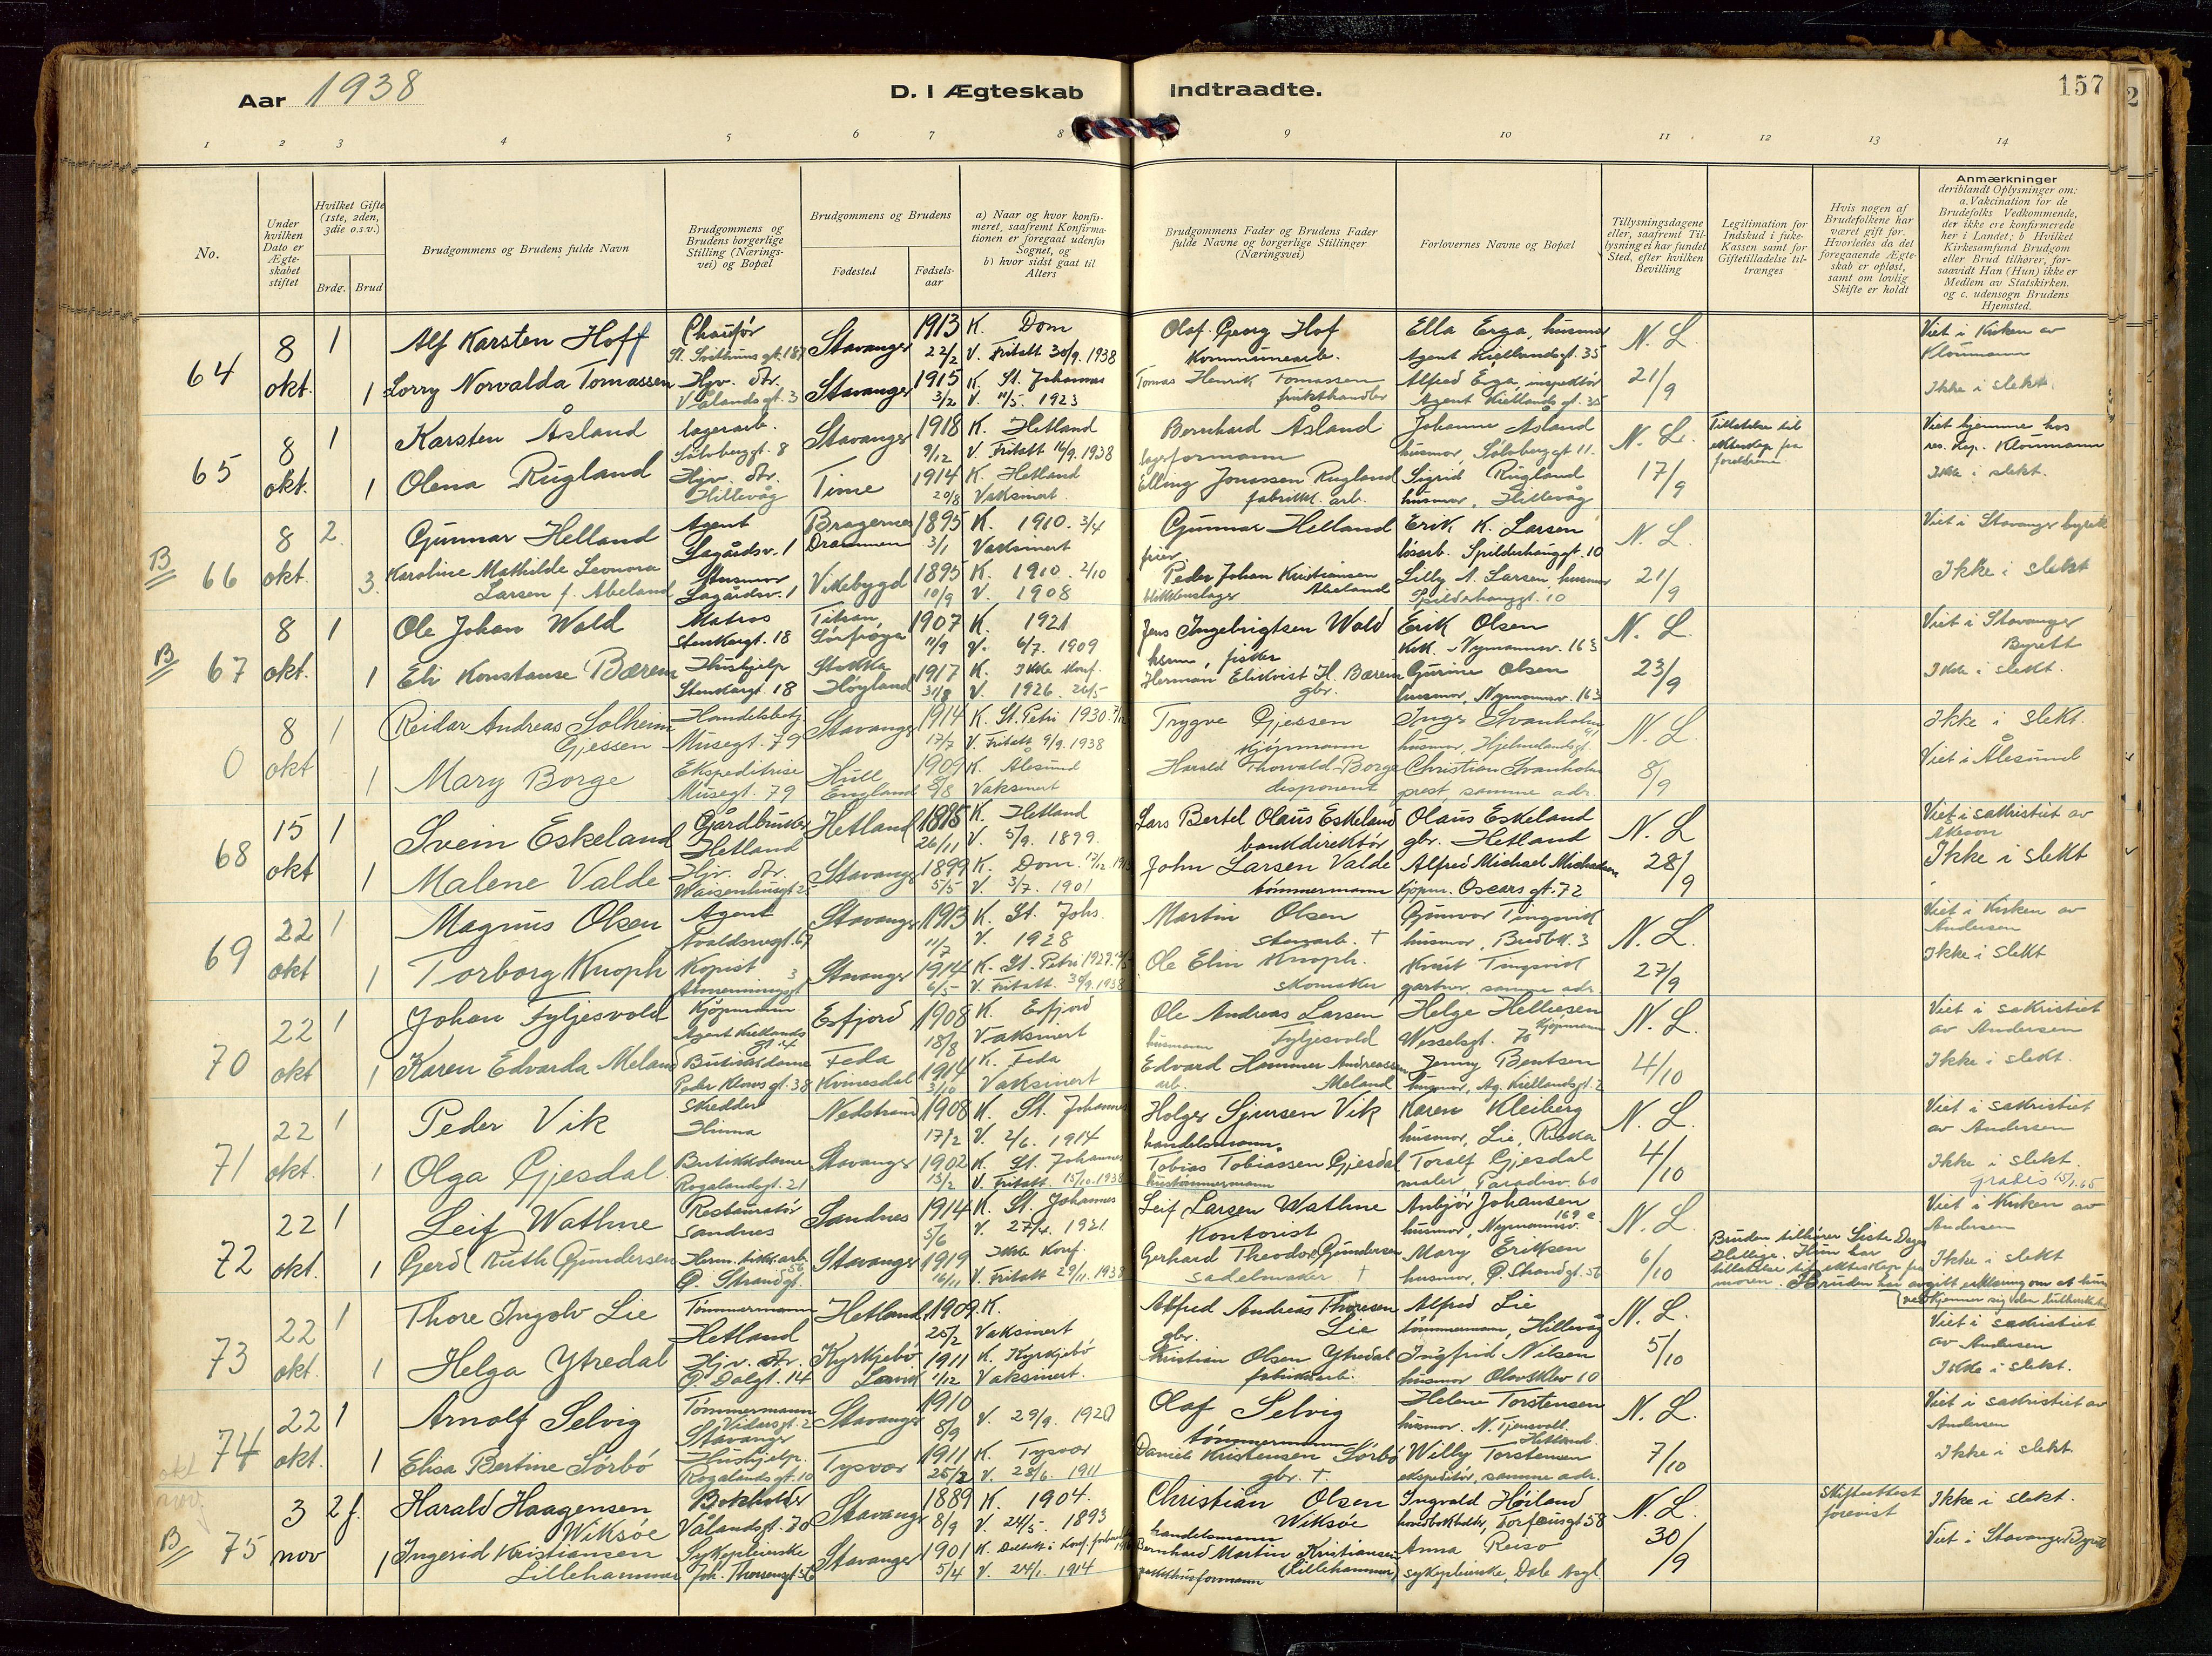 Aar 1938
D. I Ægteskab Indtraadte.
157
2
1 2 3 4 5 6 7 8 9 10 11 12 13 14
No.
Under hvilken Dato er Ægteskabet stiftet
Hvilket Gifte (1ste, 2den, 3die o.s.v.)
Brdg. Brud
Brudgommens og Brudens fulde Navn
Brudgommens og Brudens borgerlige Stilling (Næringsvei) og Bopæl
Brudgommens og Brudens
Fødested
Fødselsaar
a) Naar og hvor konfirmeret, saafremt Konfirmationen er foregaat udenfor Sognet, og
b) hvor sidst gaat til Alters
Brudgommens Fader og Brudens Fader fulde Navne og borgerlige Stillinger (Næringsvei)
Forlovernes Navne og Bopæl
Tillysningsdagene eller, saafremt Tillysning ei har fundet Sted, efter hvilken Bevilling
Legitimation for Indskud i fuke-Kassen samt for Giftetilladelse tiltrænges
Hvis nogen af Brudefolkene har været gift før. Hvorledes da det foregaaende Ægteskab er opløst, samt om lovlig Skifte er holdt
Anmærkninger
deriblandt Oplysninger om: a. Vakcination for de Brudefolks Vedkommende, der ikke ere konfirmerede her i Landet; b Hvilket Kirkesamfund Brudgom eller Brud tilhører, forsaavidt Han (Hun) ikke er Medlem av Statskirken. og c. udensogn Brudens Hjemsted.
64 8 okt. 1 Alf Karsten Hoff Chaufør St. Svithuns gt. 187 Stavanger 1913 22/2 K. Dom V. Fritatt 30/9. 1938 Olaf Georg Hof kommunearb. Ella Erga, husmor Agent Kiellandsgt. 35 N. L. 21/9 Viet i Kirken av Kloumann
1 Lorry Norvalda Tomassen Hjv. dtr. Vålandsgt. 3 Stavanger 1915 3/2 K. St. Johannes V. 11/5. 1923 Tomas Henrik Tomassen frukthandler Alfred Erga, inspektør Agent Kiellands gt. 35 Ikke i slekt.
65 8 okt. 1 Karsten Åsland lagerarb. Sølvberggt. 8 Stavanger 1918 9/12 K. Hetland V. Fritatt 16/9. 1938 Bernhard Åsland lagerformann Johanne Åsland husmor, Sølvberggt 11. N. L. 17/9 Tillatelse til ekteskap fra foreldrene Viet hjemme hos res. kap. Kloumann
1 Olena Rugland Hjv. dtr. Hillevåg Time 1914 20/8 K. Hetland Vaksinert. Elling Jonassen Rugland fabrikk. arb. Sigrid Rugland husmor, Hillevåg Ikke i slekt.
B 66 8 okt. 2. Gunnar Helland Agent Lagårdsv. 1 Bragernes Drammen 1895 3/1 K. 1910. 3/4 Vaksinert Gunnar Helland Erik K. Larsen løsarb. Spilderhauggt. 10 N. L. 21/9 Viet i Stavanger byrett
3. Karoline Mathilde Leonora Larsen f. Abeland Husmor Lagårdsv. 1 Vikebygd 1895 10/9 K. 1910. 2/10 V. 1908 Peder Johan Kristiansen Abeland blikkenslager Lilly A. Larsen, husmor Spilderhauggt. 10 Ikke i slekt
B 67 8 okt. 1 Ole Johan Wold Matros Stenkargt. 18 Titran, Sørfrøya 1907 11/9 K. 1921 V. 6/7. 1909 Jens Ingebrigtsen Wold fisker Erik Olsen Nymannsv. 163 N. L. 23/9 Viet i Stavanger Byrett
1 Eli Konstanse Bærem Hushjelp Stenkargt. 18 Stokka Høyland 1917 31/8 K. Ikke konf. V. 1926. 26/5 Herman Elikvist H. Bærem gbr. Gurine Olsen husmor, Nymannsv. 163 Ikke i slekt.
0 8 okt 1 Reidar Andreas Solheim Gjessen Handelsbetj. Musegt. 79 Stavanger 1914 17/7 K. St. Petri 1930. V. Fritatt 9/9. 1938 Trygve Gjessen Kjøpmann Inger Svanholm husmor, Hjelmelandsgt. N. L. 8/9 Ikke i slekt.
1 Mary Borge Ekspeditrise Musegt. 79 Hull England 1909 K. Ålesund Vaksinert Harald Thorvald Borge disponent Christian Svanholm prest, samme adr. Viet i Ålesund
68 15 okt 1 Svein Eskeland Gårdbruker Hetland Hetland 1885 26/11 K. Hetland V. 5/9. 1899. Lars Bertel Olaus Eskeland bankdirektør Olaus Eskeland gbr. Hetland N. L 28/9 Viet i sakristiet av Åkeson
1 Malene Valde Hjv. dtr. Waisenhusgt. 25 Stavanger 1899 5/5 K. Dom. V. 3/7. 1901 John Larsen Valde tømmermann Alfred Michael Michaelsen kjøpm. Oscars gt. 72 Ikke i slekt
69 22 okt 1 Magnus Olsen Agent Stavanger 1913 11/7 K. St. Johs. V. 1928 Martin Olsen † Gunvor Tingvik husmor, N. L. 27/9 Viet i Kirken av Andersen
1 Torborg Knoph Kopist Stavanger 1914 6/5 K. St. Petri 1929. V. Fritatt. 30/9. 1938 Ole Elin Knoph. skomaker Knut Tingvik gartner, samme adr. Ikke i slekt
70 22 okt 1 Johan Fyljesvold Kjøpmann Agent Kiellands gt. 4 Erfjord 1908 18/8 K. Erfjord Vaksinert Ole Andreas Larsen Fyljesvold husmann Helge Helliesen Kjøpmann Wesselsgt. N. L. 4/10 Viet i sakristiet av Andersen
1 Karen Edvarda Meland Butikkdame Peder Klows gt. 38 Feda Kvinesdal 1914 3/10 K. Feda Vaksinert Edvard Hammer Andreassen Meland arb. Jenny Bentsen husmor, Ag. Kiellandsgt. 2 Ikke i slekt.
71 22 okt. 1 Peder Vik Skredder Hinna Nedstrand 1908 17/2 K. St. Johannes V. 2/6. 1914 Holger Sjursen Vik handelsmann Karen Kleiberg husmor, Lie, Riska N. L. 4/10 Viet i sakristiet av Andersen
1 Olga Gjesdal Butikkdame Rogalandsgt. 21 Stavanger 1902 13/2 K. St. Johannes V. Fritatt. 15/10. 1938 Tobias Tobiassen Gjesdal Toralf Gjesdal maler Paradisv. 60 Ikke i slekt. gratis
72 22 okt. 1 Leif Wathne Restauratør Sandnes Sandnes 1914 5/6 K. St. Johannes V. 27/4. 1921 Leif Larsen Wathne Kontorist Anbjør Johansen husmor, Nymannsv. 169 N. L. 6/10 Viet i Kirken av Andersen
1 Gerd Ruth Gundersen Herm. fabr. arb Ø. Strandgt. 56 Stavanger 1919 16/11 Ikke konf. V. Fritatt 29/11. 1938 Gerhard Theodor Gundersen sadelmaker † Mary Eriksen husmor, Ø. Strandgt. 56 Bruden tilhører Siste Dages Hellige. Hun har tillatelse til ekteskap fra moren. Bruden har avgitt erklæring om at hun vedkjenner sig den lutherske Ikke i slekt
73 22 okt. 1 Thore Ingolv Lie Tømmermann Hetland Hetland 1909 25/2 K. Vaksinert Alfred Andreas Thoresen Lie gbr. Alfred Lie tømmermann, Hillevåg N. L. 5/10 Viet i sakristiet av Andersen
1 Helga Ytredal Hjv. dtr. Ø. Dalgt. 14 Kyrkjebø Lavik 1911 1/12 K. Kyrkjebø Vaksinert. Kristian Olsen Ytredal fabrikkarb. Ingfrid Nilsen husmor Olavskleiv 10 Ikke i slekt.
74 22 okt. 1 Arnolf Selvig Tømmermann Vidarsgt. 2 Stavanger Stavanger 1910 8/9 V. 29/9. 1920 Olaf Selvig tømmermann Helene Torstensen husmor. N. Tjensvoll. Hetland. N. L. 7/10 Viet i sakristiet av Andersen
1 Elisa Bertine Sørbø Hushjelp. Rogalandsgt. 10 Tysvær Tysvær 1911 25/2 K. Tysvær V. 28/6. 1911 Daniel Kristensen Sørbø gbr. †. Willy Torstensen ekspeditør, samme adr. Ikke i slekt.
okt
nov.
B 75 3 nov 2 f. Harald Haagensen Wiksøe Bokholder Vålandsgt. 70 Stavanger 1889 8/9 K. 1904. V. 24/5. 1893 Christian Olsen Wiksøe handelsmann Ingvald Høiland hovedbokholder, Torfæusgt 58 N. L. 30/9 Skifteattest forevist Ikke i slekt.
1 Ingerid Kristiansen Lillehammer Sykepleierske Joh. Thorsensgt. 56 Stavanger 1901 5/4 V. 24/1. 1914 Bernhard Martin Kristiansen (Lillehammer) pakkhusformann Anna Reiso sykepleierske, Dale Asyl. Viet i Stavanger Byrett